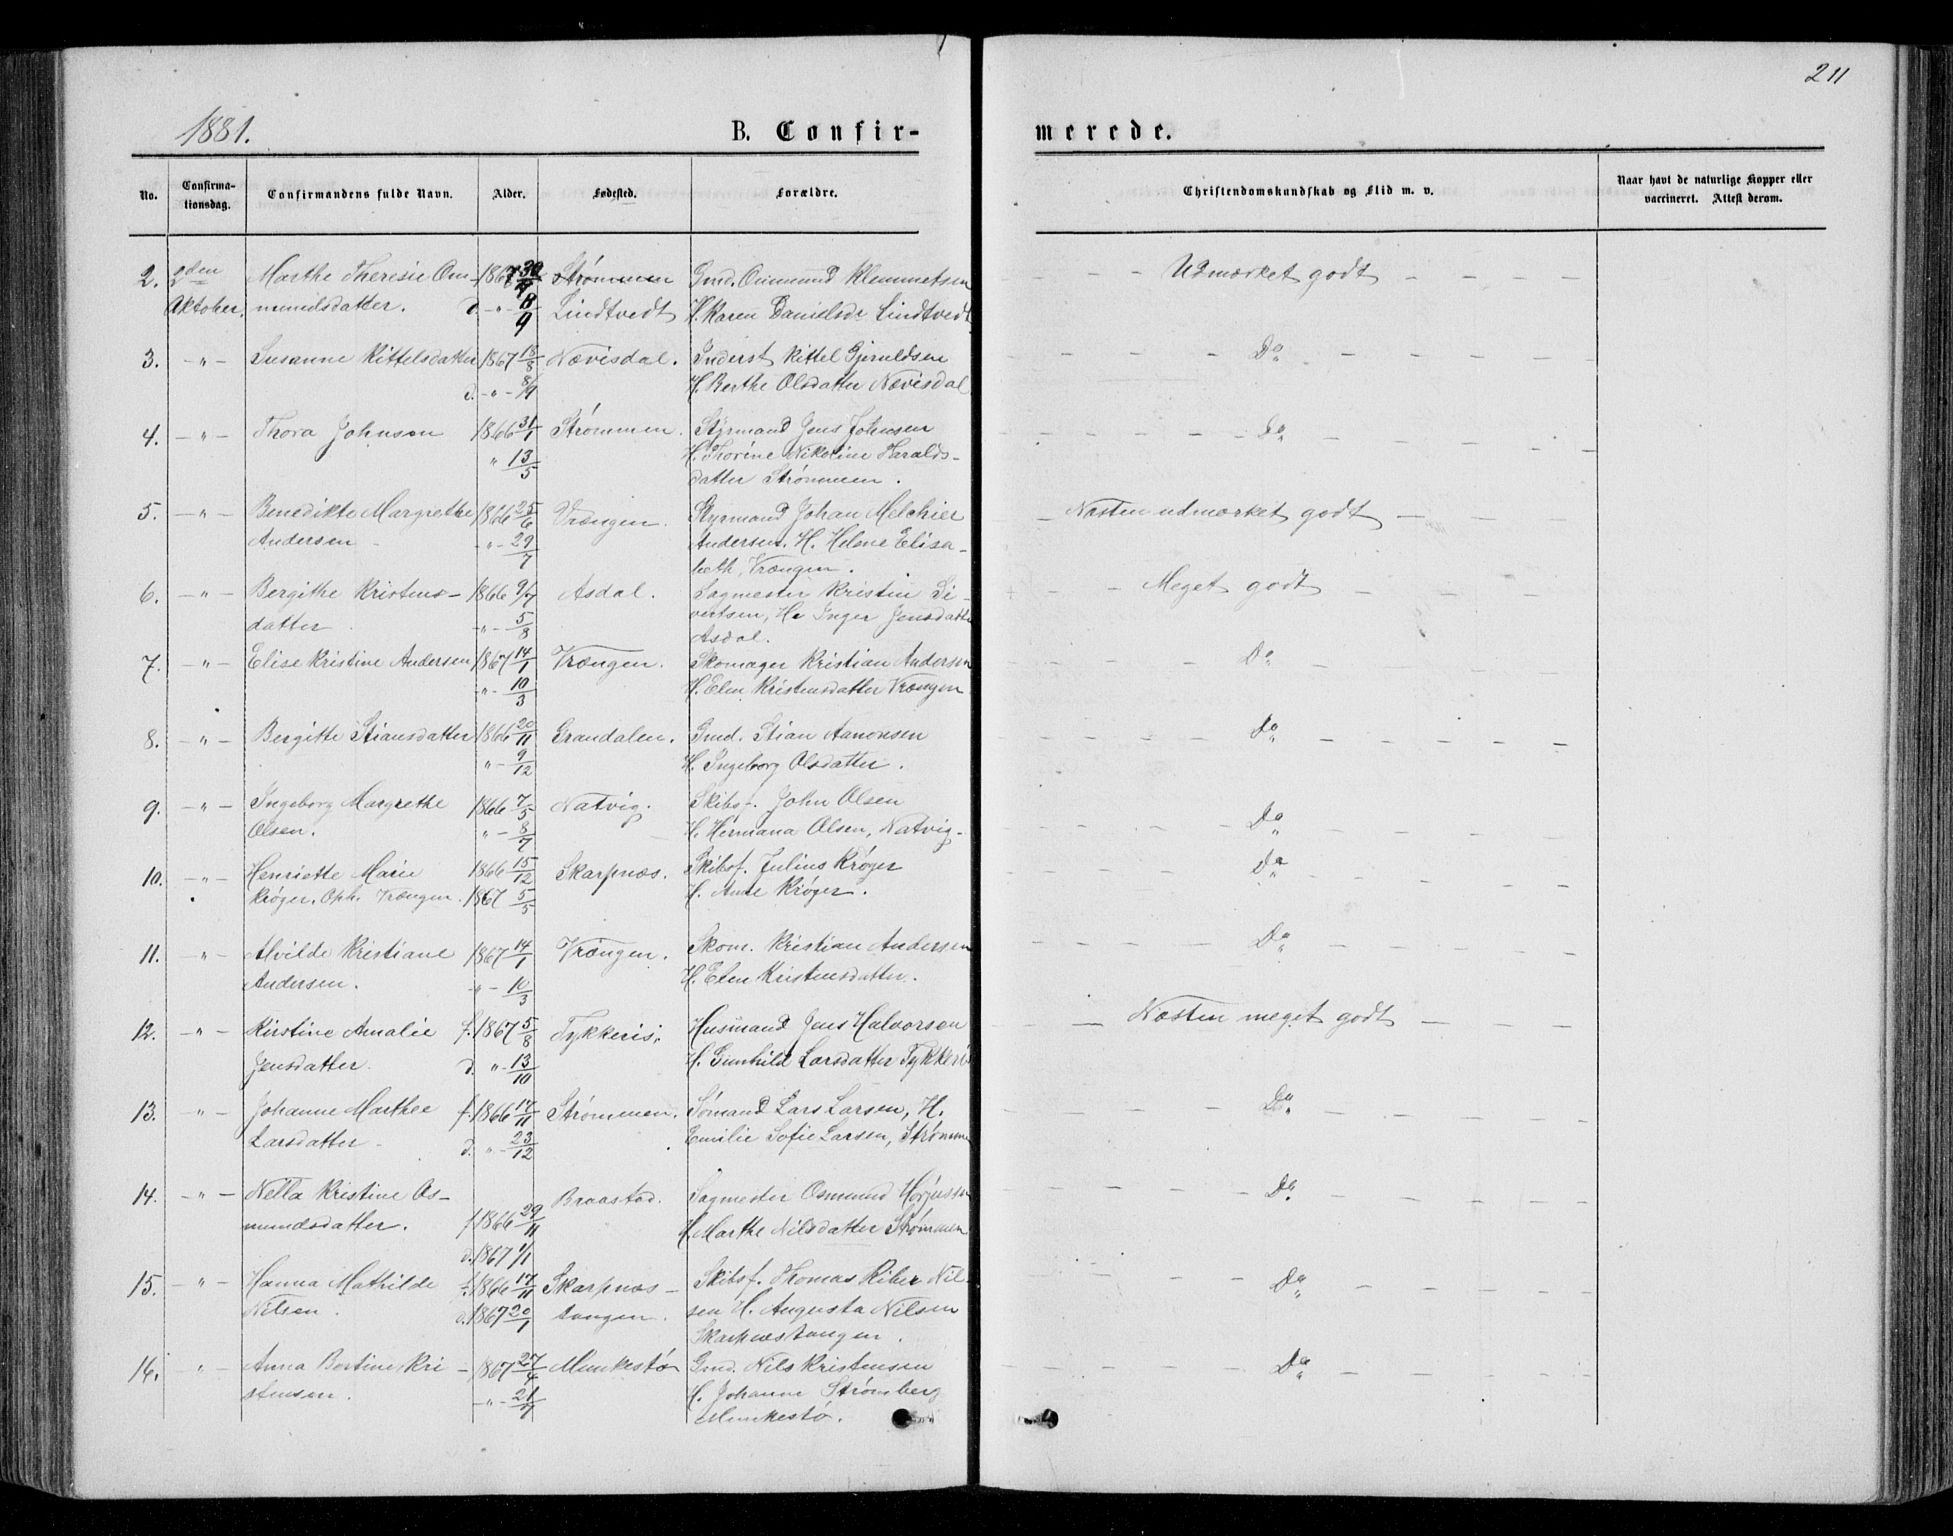 211
1881.
B. Confir-
merede.
No.
Confirma-
tionsdag.
Confirmandens fulde Navn.
Alder.
Fødested.
Forældre.
Christendomskundskab og Flid m. v.
Naar havt de naturlige Kopper eller
vaccineret. Attest derom.
2. 2den Marthe Theresie Om- 1867 30/7 Strømmen Gmd. Ommund Klemmetsen - - - Udmærket godt - - - -
Oktober. mundsdatter. d. - " - 8/9 Lindtvedt H. Karen Danielsdr Lindtvedt
3. - " - Susanne Kittelsdatter 1867 15/8 Nævisdal. Inderst Kittel Gjeruldsen - - - - - Do - - - - -
d. - " - 8/9 H. Berthe Olsdatter Nævisdal
4. - " - Thora Johnsen 1866 31/1 Strømmen. Styrmand Jens Johnsen - - - - - - Do - - - -
" 13/5 H. Thorine Nikoline Haralds-
datter Strømmen.
5. - " - Benedikte Margrethe 1866 25/6 Vrængen. Styrmand Johan Melchier - Næsten udmærket godt - - - -
Andersen - - " - 29/7 Andersen. H. Helene Elisa-
beth, Vrængen.
6. - " - Bergithe Kristens- 1866 9/7 Asdal. Sagmester Kristin Si- - - Meget godt - - -
datter. - " - 5/8 vertsen, H. Inger Jensdatter
Asdal.
7. - " - Elise Kristine Andersen 1867 14/1 Vrængen. Skomager Kristian Andersen - - - - Do - - -
- " - 10/3 H. Elen Kristensdatter Vrængen
8. - " - Bergitte Stiansdatter 1866 20/11 Grandalen. Gmd. Stian Aanonsen - - - - - Do - - - - - -
" - 9/12 H. Ingeborg Olsdatter.
9. - " - Ingeborg Margrethe 1866 7/5 Natvig. Skibs-. John Olsen - - - - - Do - - - - -
Olsen. " - 8/7 H. Hermana Olsen, Natvig -
10. - " - Henriette Marie 1866 15/12 Skarpnæs. Skibsf. Julius Krøger - - - - - Do - - - - -
Krøger. Oph. Vrængen. 1867 5/5 H. Anne Krøger.
11. - " - Alvilde Kristiane 1867 14/1 Vrængen. Skom. Kristian Andersen - - - - - Do - - - - -
Andersen. - " - 10/3 H. Elen Kristensdatter.
12. - " - Kirstine Amalie f. 1867 5/8 Tykkeris. Husmand Jens Halvorsen - - Næsten meget godt - - - -
Jensdatter. d. " - 13/10 H. Gunhild Larsdatter Tykkeris
13. - " - Johanne Marthee f. 1866 17/11 Strømmen. Sømand Lars Larsen, H. - - - - - Do - - - - -
Larsdatter - d. " - 23/12 Emilie Sofie Larsen, Strømmen
14. - " - Nella Kristine Os- Braastad. Sagmester Osmund - - - - - Do - - - - -
mundsdatter. f. 1866 29/11 H. Marthe Nilsdatter Strømmen
d. 1867 1/1
15. - " - Hanna Mathilde f. 1866 17/11 Skarpnæs- Skibsf. Thomas Riber Nil- - - - - Do - - - - -
Nilsen. d. 1867 20/1 tangen. sen H. Augusta Nilsen
Skarpnæstangen.
16. " - Anna Bertine Kri- 1867 27/4 Munkestø Gmd. Nils Kristensen - - - - - Do - - - - -
stensen. - " - 21/7 H. Johanne Strømberg
Munkestø.